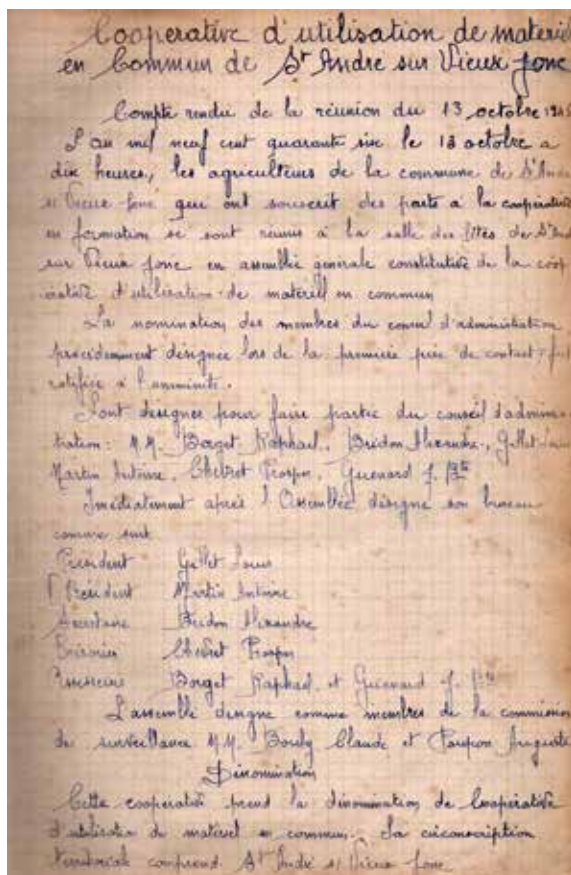 Cooperative d'utilisation de materiel
en Commun de St Andre sur Vieux jonc
Compte rendu de la réunion du 13 octobre 194
L'an mil neuf cent quarante six le 13 octobre a
dix heures, les agriculteurs de la commune de St André
s/ Vieux-Jonc qui ont souscrit des parts a la cooperative
en formation se sont réunis à la salle des fêtes de St And
sur Vieux jonc en assemblée generale constitutive de la coop
érative d'utilisation de matériel en commun
La nomination des membres du conseil d'administration
précédemment désignée lors de la premiere prise de contact, fut
ratifiée a l'unnimité.
Sont designes pour faire partie du conseil d'adminis-
tration: M.M. Borget Raphael, Bridon Alexandre, Gillet Louis
Martin Antoine, Chevret Prosper, Guenard J. Bte
Imédiatement après l'Assemblée désigne son bureau
comme suit
President Gillet Louis
V Président Martin Antoine
Secretaire Bridon Alexandre
Trésorier Chevret Prosper
Borget Raphael et Guenard J. Bte
L'assemble designe comme membres de la commission
de surveillance M.M. Bouly Claude et Poupon Auguste
Dénomination
Cette cooperative prend la dénomination de Cooperative
d'utilisation de matériel en commun. Sa circonscription
territoriale comprend St André s/ Vieux-Jonc